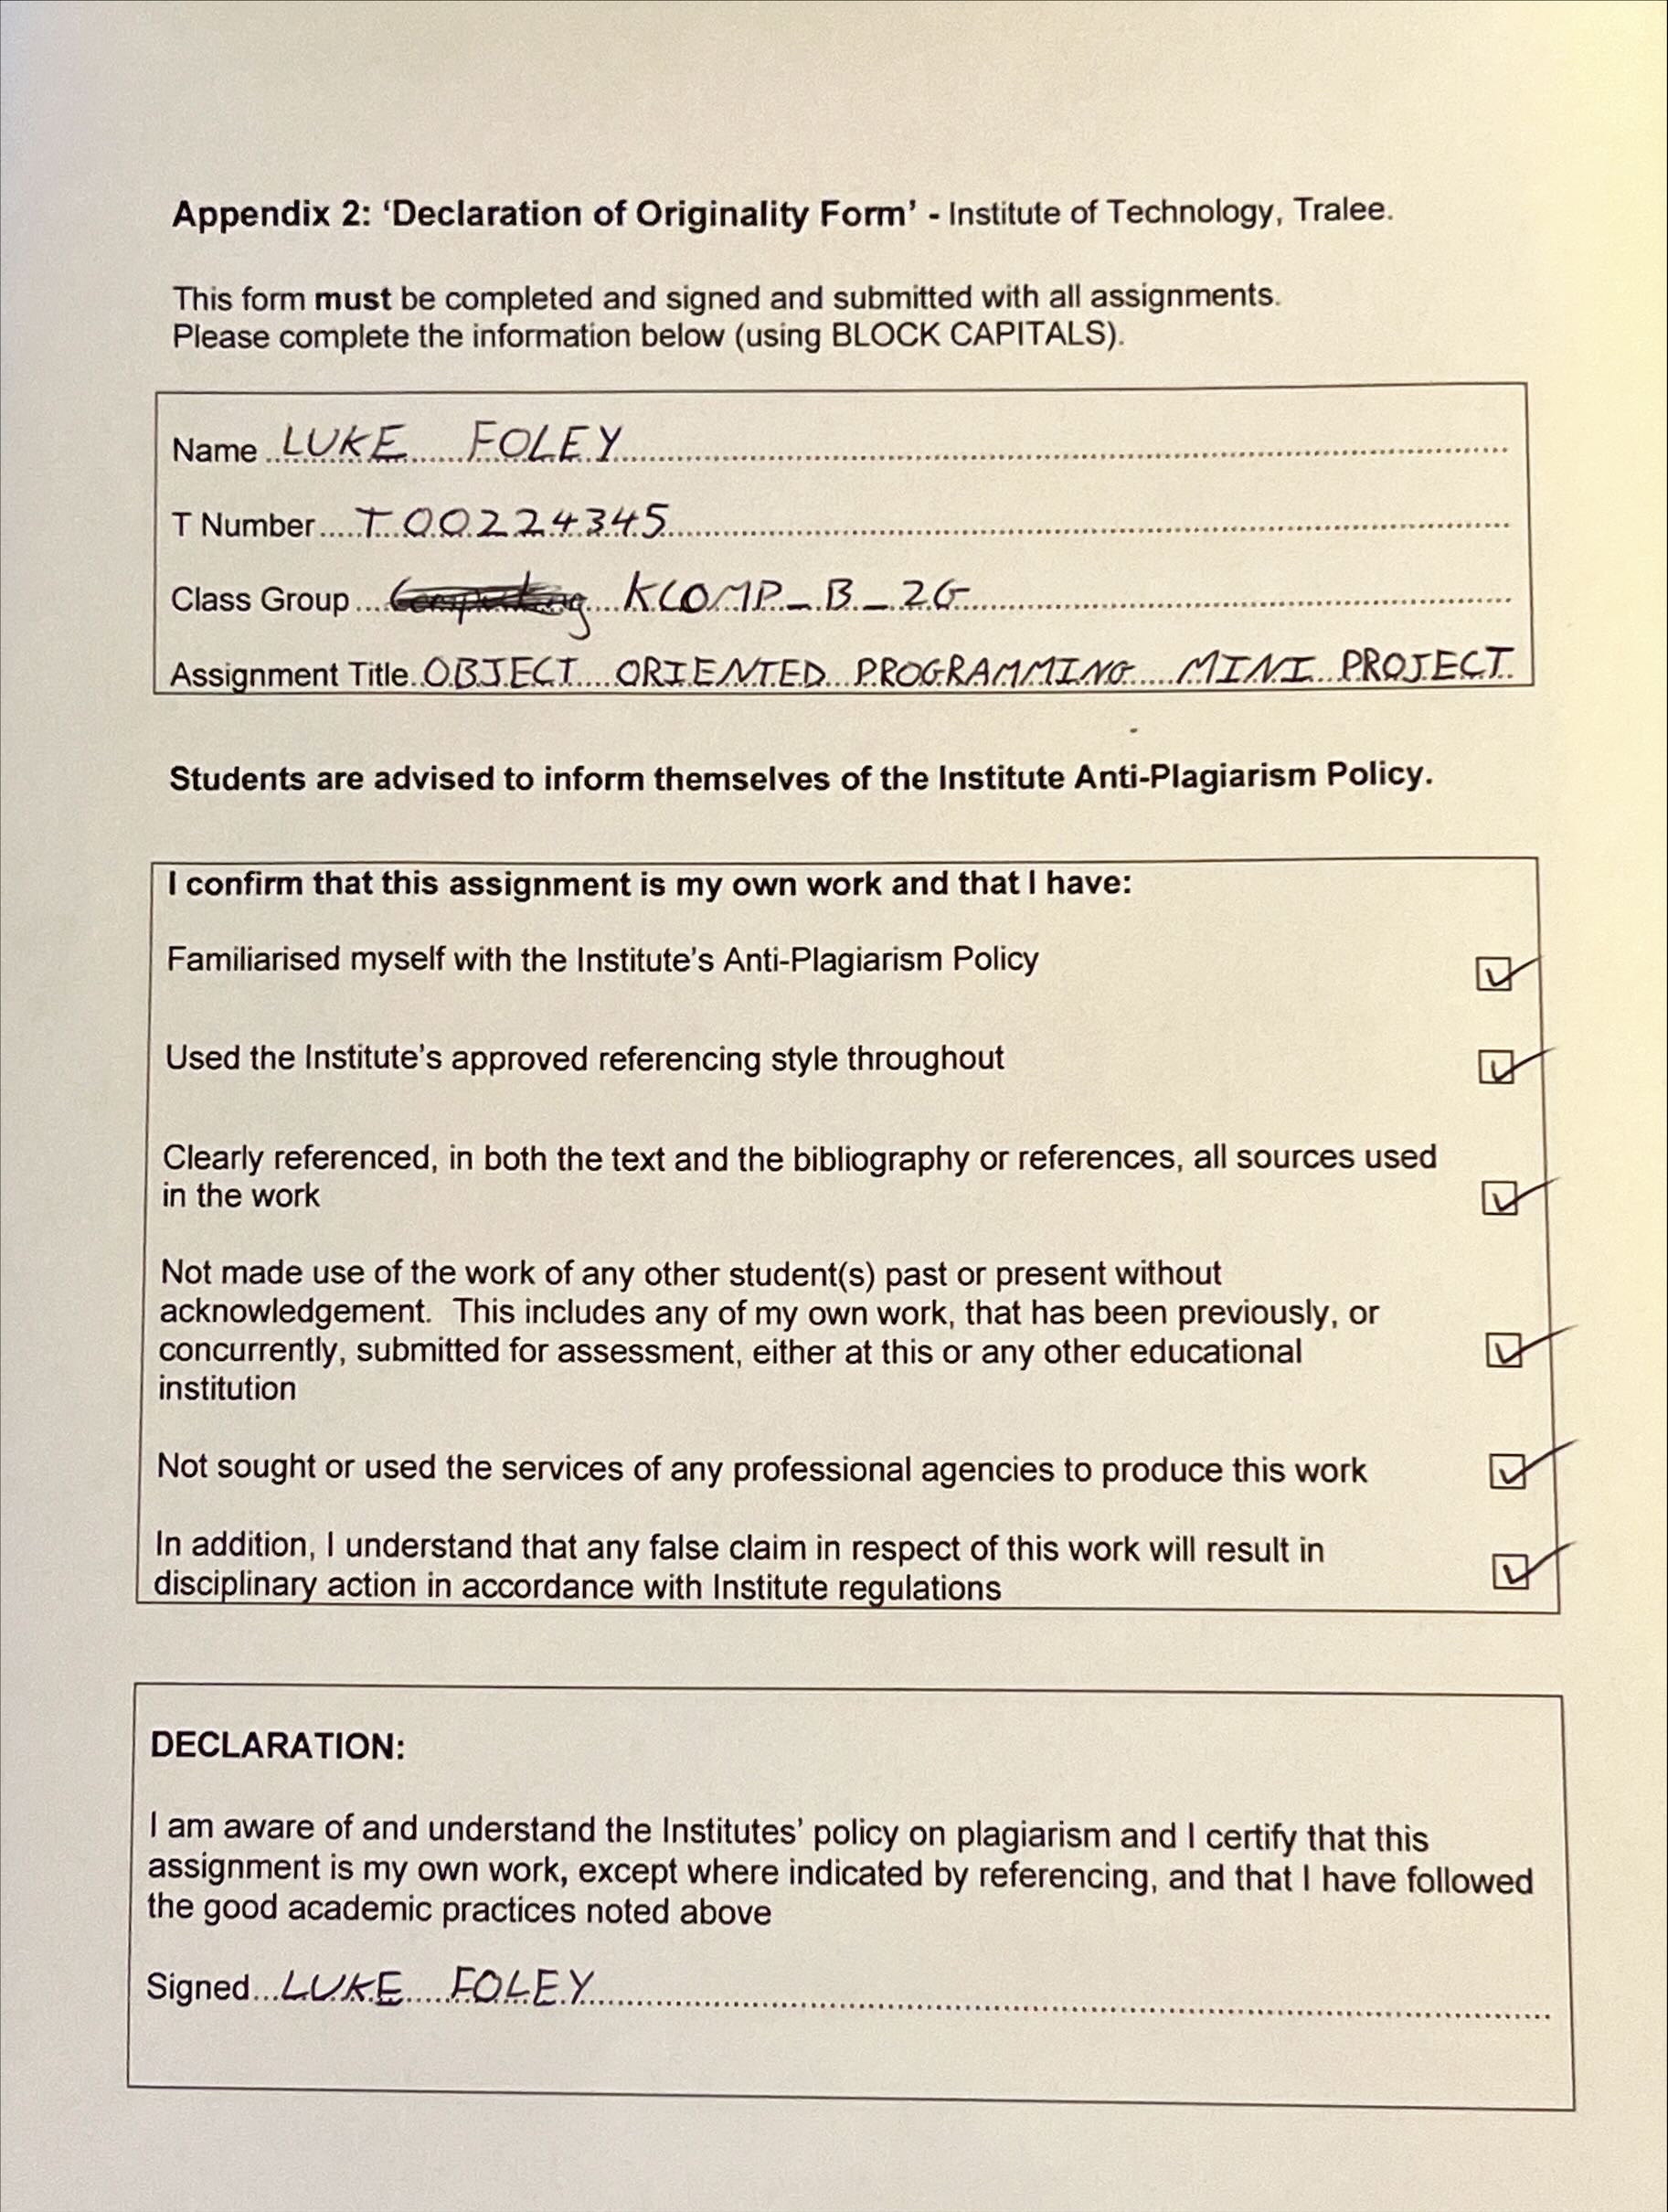 Appendix 2: ‘Declaration of Originality Form’ - Institute of Technology, Tralee.
This form must be completed and signed and submitted with all assignments.
Please complete the information below (using BLOCK CAPITALS).
Name LUKE FOLEY
T Number T00224345
Class Group Computing KCOMP_B_2G
Assignment Title OBJECT ORIENTED PROGRAMMING MINI PROJECT
Students are advised to inform themselves of the Institute Anti-Plagiarism Policy.
I confirm that this assignment is my own work and that I have:
Familiarised myself with the Institute’s Anti-Plagiarism Policy
Used the Institute’s approved referencing style throughout
Clearly referenced, in both the text and the bibliography or references, all sources used
in the work
Not made use of the work of any other student(s) past or present without
acknowledgement. This includes any of my own work, that has been previously, or
concurrently, submitted for assessment, either at this or any other educational
institution
Not sought or used the services of any professional agencies to produce this work
In addition, I understand that any false claim in respect of this work will result in
disciplinary action in accordance with Institute regulations
DECLARATION:
I am aware of and understand the Institutes’ policy on plagiarism and I certify that this
assignment is my own work, except where indicated by referencing, and that I have followed
the good academic practices noted above
Signed LUKE FOLEY